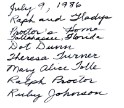 July 9, 1986
Raph and Gladys
Proctor's Home
Tallahassee, Florida
Dot Dunn
Theresa Turner
Mary Alice Tolle
Ralph Proctor
Ruby Johnson